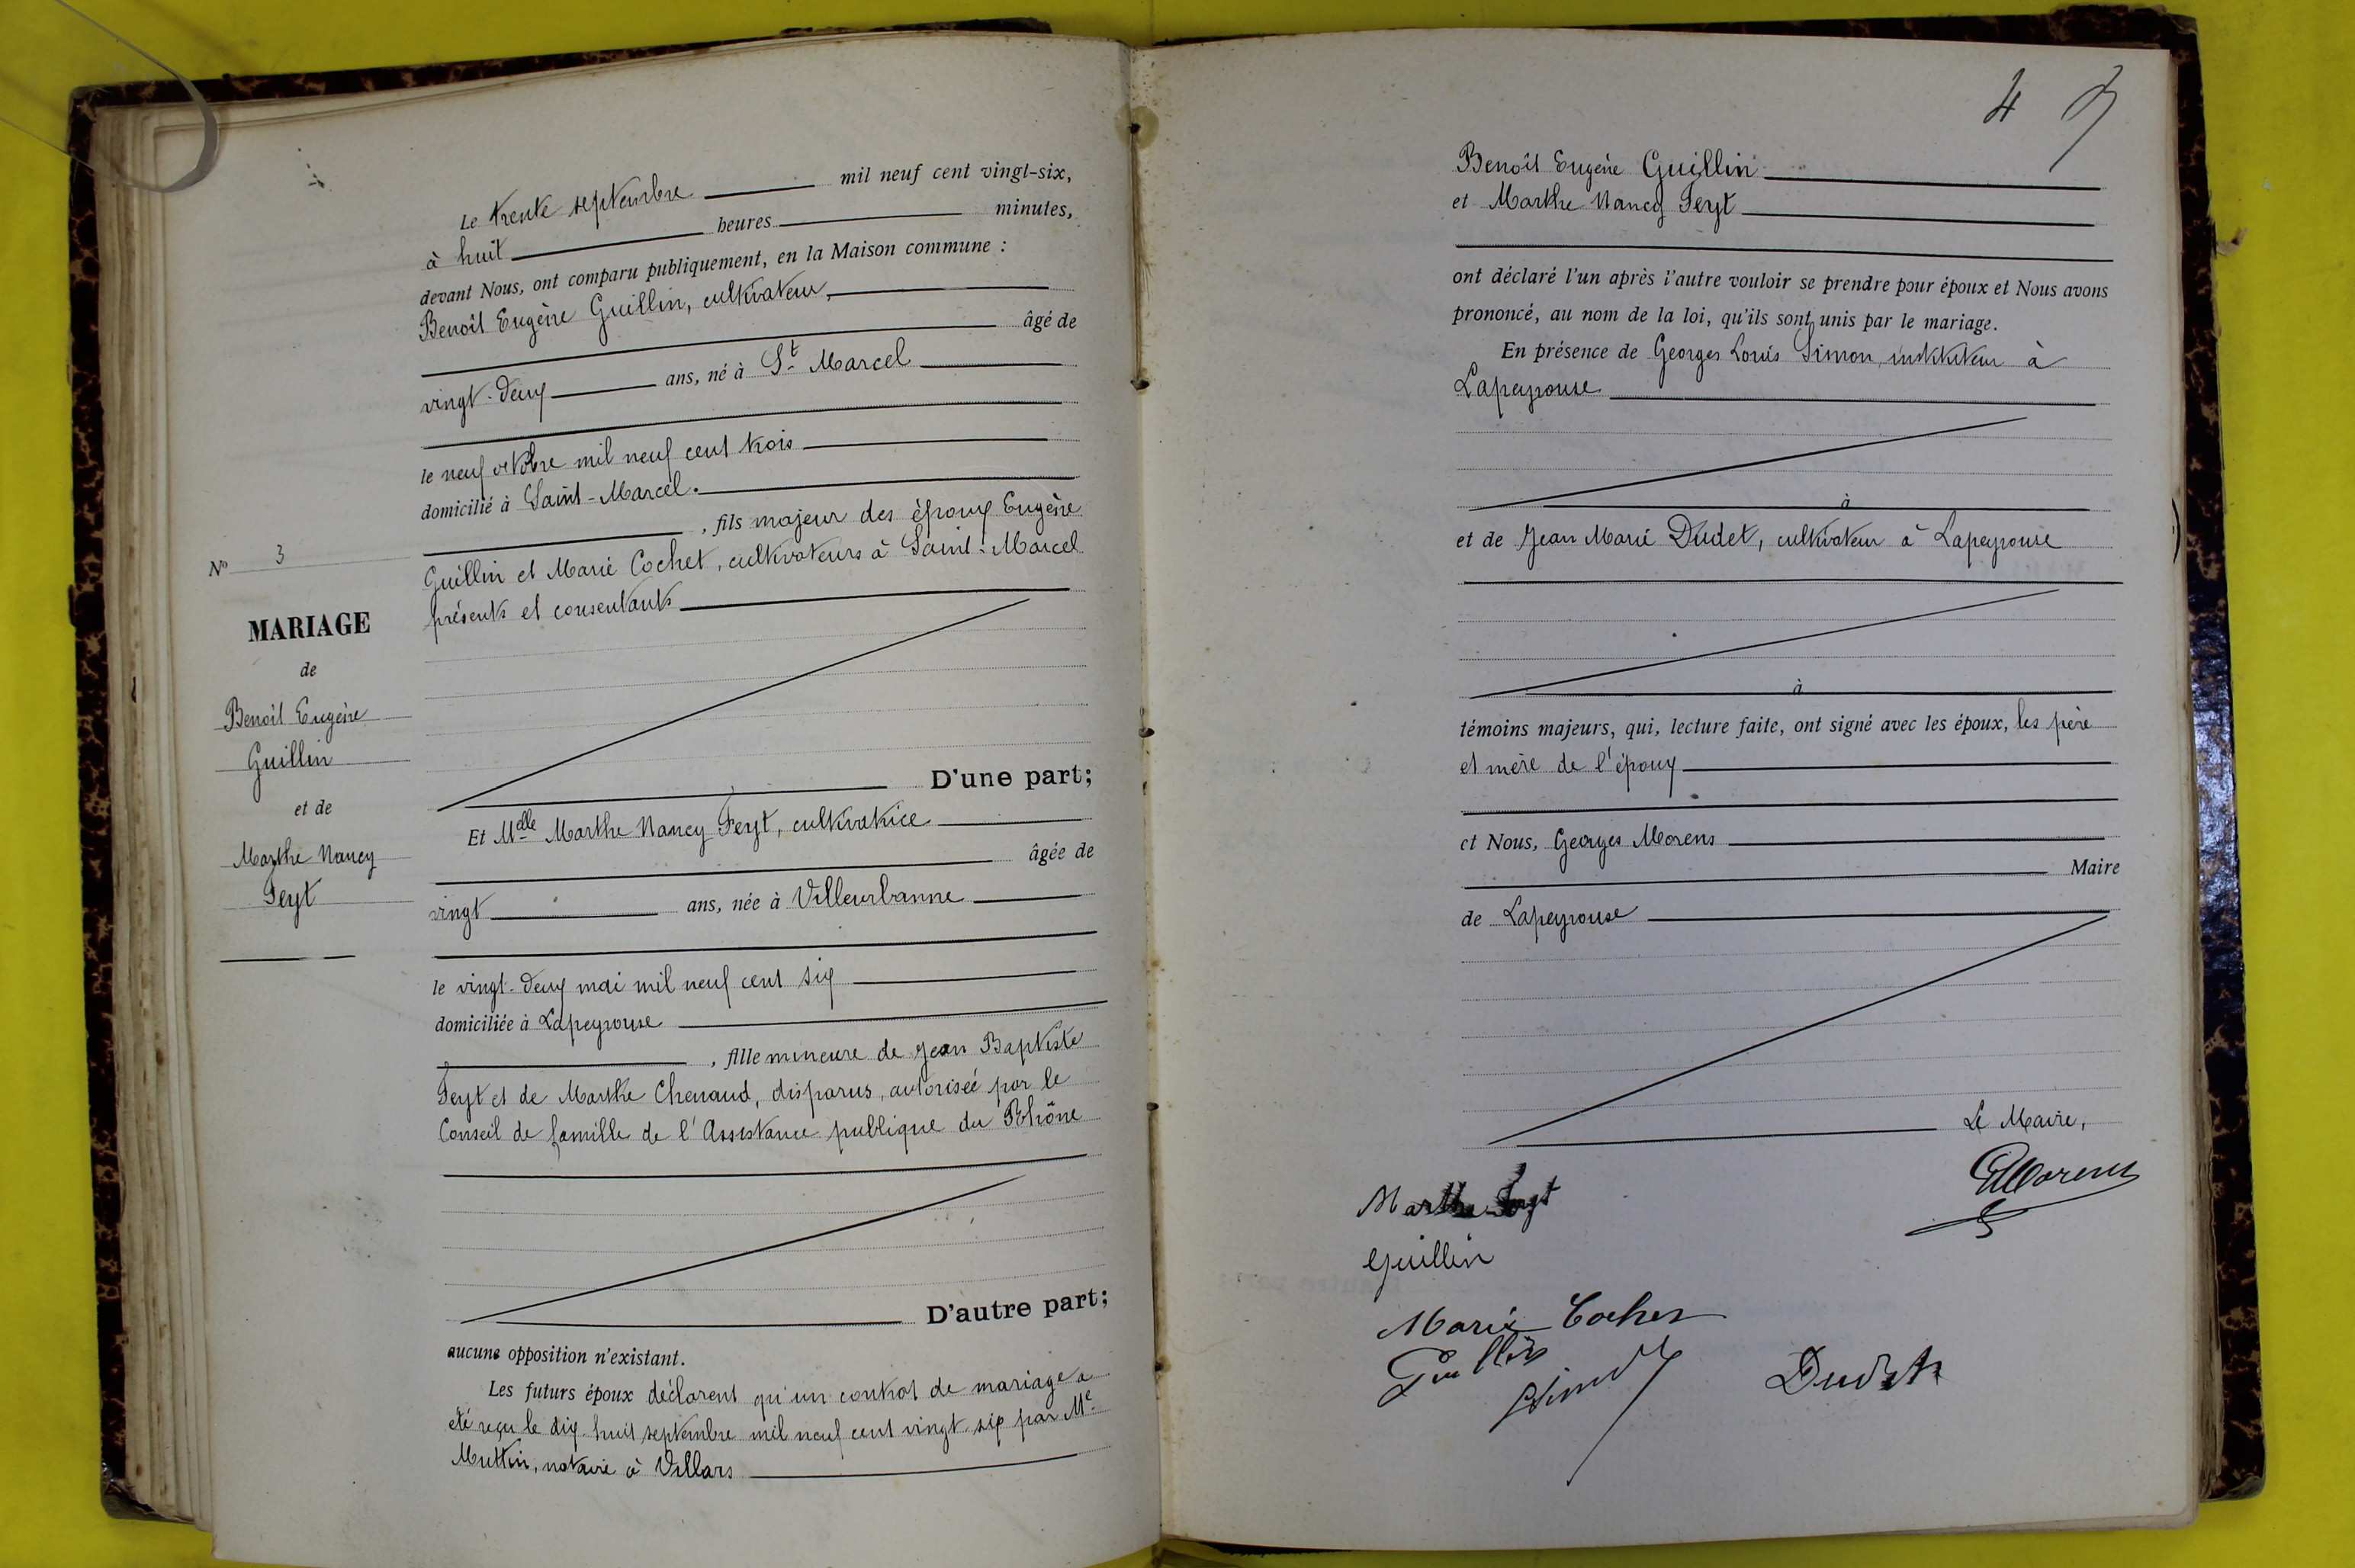 Le trente septembre mil neuf cent vingt-six,
à huit heures minutes,
devant Nous, ont comparu publiquement, en la Maison commune :
Benoît Eugène Guillin, cultivateur,
âgé de
vingt-deux ans, né à St Marcel
le neuf octobre mil neuf cent trois
domicilié à Saint-Marcel.
, fils majeur des époux Eugène
Guillin et Marie Cochet, cultivateurs à Saint-Marcel
présents et consentants
D'une part;
Et Melle Marthe Nancy Feyt, cultivatrice
âgée de
vingt ans, née à Villeurbanne
le vingt-deux mai mil neuf cent six
domiciliée à Lapeyrouse
, fille mineure de Jean Baptiste
Feyt et de Marthe Chenaud, disparus, autorisée par le
Conseil de famille de l'Assistance publique du Rhône
D'autre part;
aucune opposition n'existant.
Les futurs époux déclarent qu'un contrat de mariage a
été reçu le dix-huit septembre mil neuf cent vingt-six par Me
Muttin, notaire à Villars
No 3
MARIAGE
de
Benoît Eugène
Guillin
et de
Marthe Nancy
Feyt
4
Benoît Eugène Guillin
et Marthe Nancy Feyt
ont déclaré l'un après l'autre vouloir se prendre pour époux et Nous avons
prononcé, au nom de la loi, qu'ils sont unis par le mariage.
En présence de Georges Louis Simon, instituteur à
Lapeyrouse
à
et de Jean Marie Dudet, cultivateur à Lapeyrouse
à
témoins majeurs, qui, lecture faite, ont signé avec les époux, les père
et mère de l'époux
et Nous, Georges Morens
Maire
de Lapeyrouse
Le Maire,
GMorens
Marthe Feyt
Guillin
Marie Cochet
Guillin
Simon
Dudet